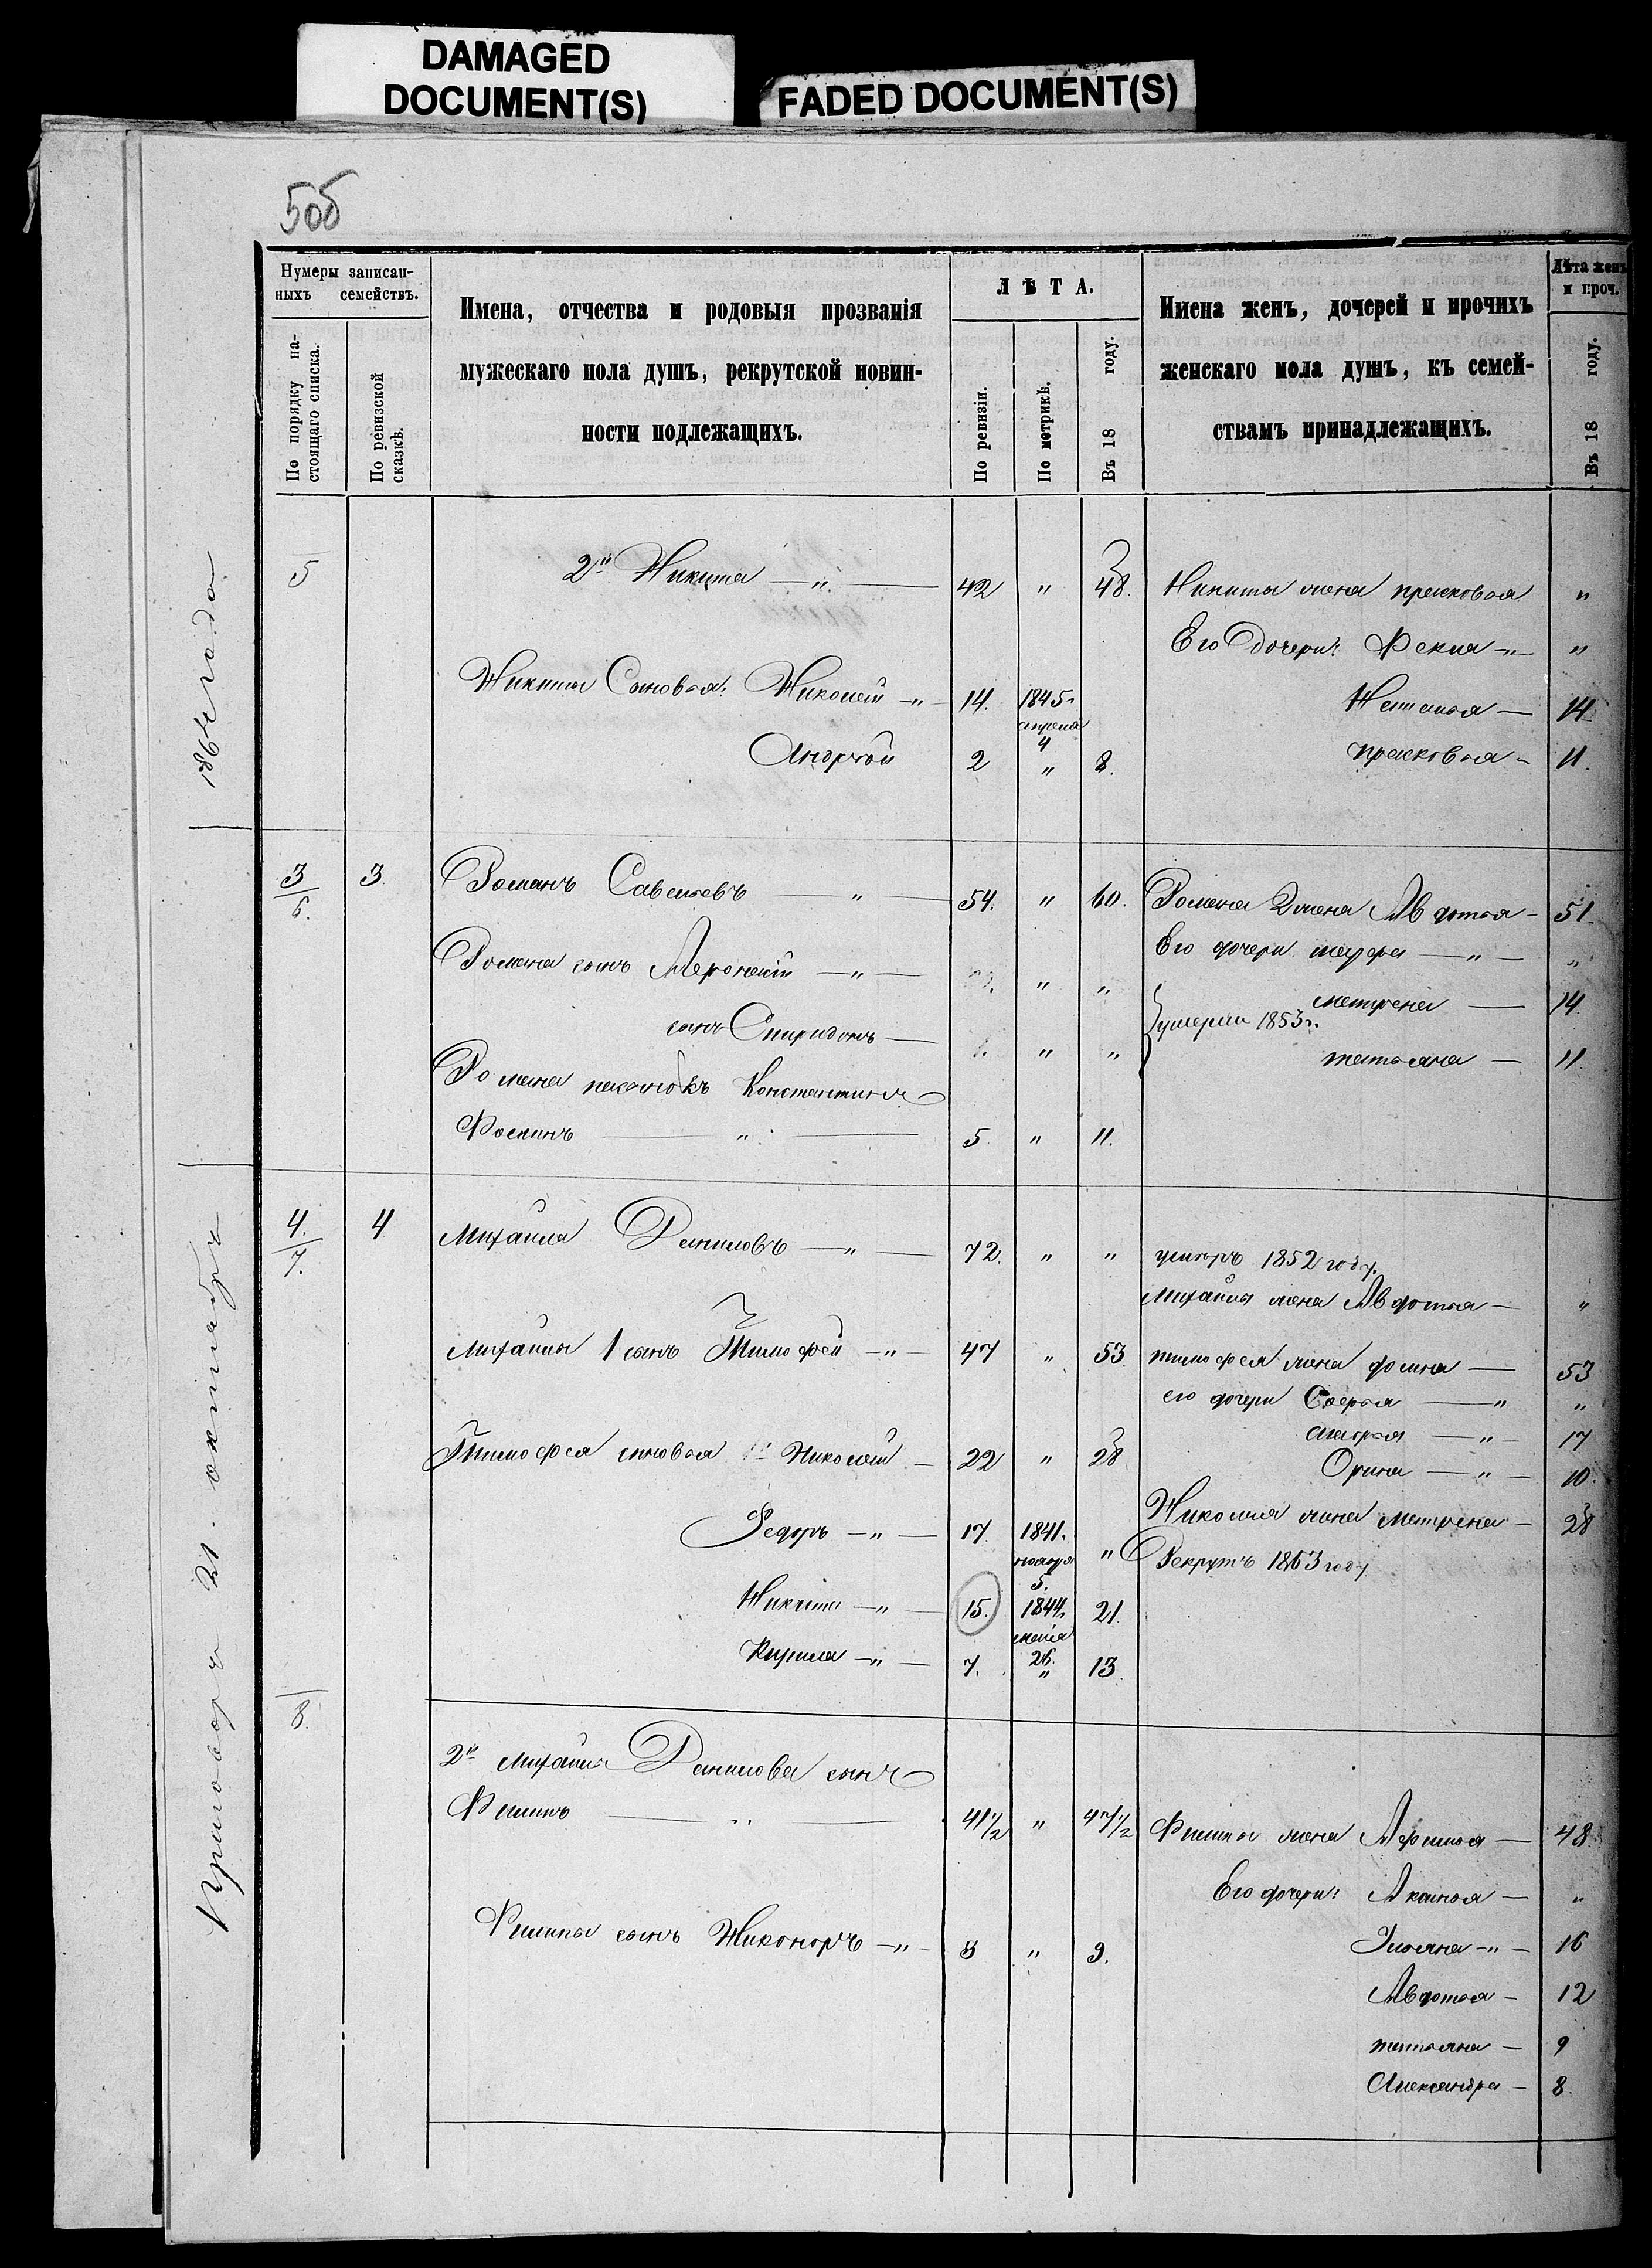 DAMAGED
DOCUMENT(S)
FADED DOCUMENT(S)
50б
Нумеры записан-
ныхъ семействъ.
По порядку на-
стоящаго списка.
По ревизской
сказкѣ.
Имена, отчества и родовыя прозванія
мужескаго пола душъ, рекрутской повин-
ности подлежащихъ.
ЛѢТА.
По ревизіи.
По метрикѣ.
Въ 18 году.
Имена женъ, дочерей и прочихъ
женскаго пола душъ, къ семей-
ствамъ принадлежащихъ.
Лѣта женъ
и проч.
Въ 18 году.
Приговоръ 21. октября 1864 года
5 2й Никита — „ — 42 „ 48. Никиты жена прасковья „
Его дочери: Фекла — „ — „
Никиты Сыновья: Николай — „ — 14. 1845 г. апреля 4 Наталья — 14
Андрей 2 „ 8. прасковья — 11.
3/6. 3 Романъ Савельевъ — „ — 54. „ 60. Романа 2 жена Авдотья — 51.
Его дочери марфа — „ — „
Романа сынъ Афонасій — „ — „ „
матрена — 14
сынъ Спиридонъ — „ „ умерли 1853 г.
татьяна — 11.
Романа пасынокъ Константинъ
Фоминъ — „ — 5. „ 11.
4./7. 4 Михайла Даниловъ — „ — 72. „ „ умеръ 1852 году.
Михайлы жена Авдотья — „
Михайлы 1 сынъ Тимофей — „ — 47 „ 53. тимофея жена фомна — 53
его дочери Софья — „ „
Тимофея сыновья 1й Николай — 22 „ 28 марья — „ — 17
Орина — „ — 10.
Николая жена матрена — 28
Федоръ — „ — 17. 1841. ноября 5. „ Рекрутъ 1863 году
Никита — „ — 15. 1844 г. мая 26. 21.
Кирила — „ — 7. „ 13.
8.
2й Михайла Данилова сынъ
Филипъ — „ — 41 1/2 „ 47 1/2 Филипа жена Афимья — 48.
Его дочери: Акилья — „
Филипа сынъ Никоноръ — „ — 3 „ 9. Ульяна — „ — 16
Авдотья — 12
татьяна — 9
Александра — 8.